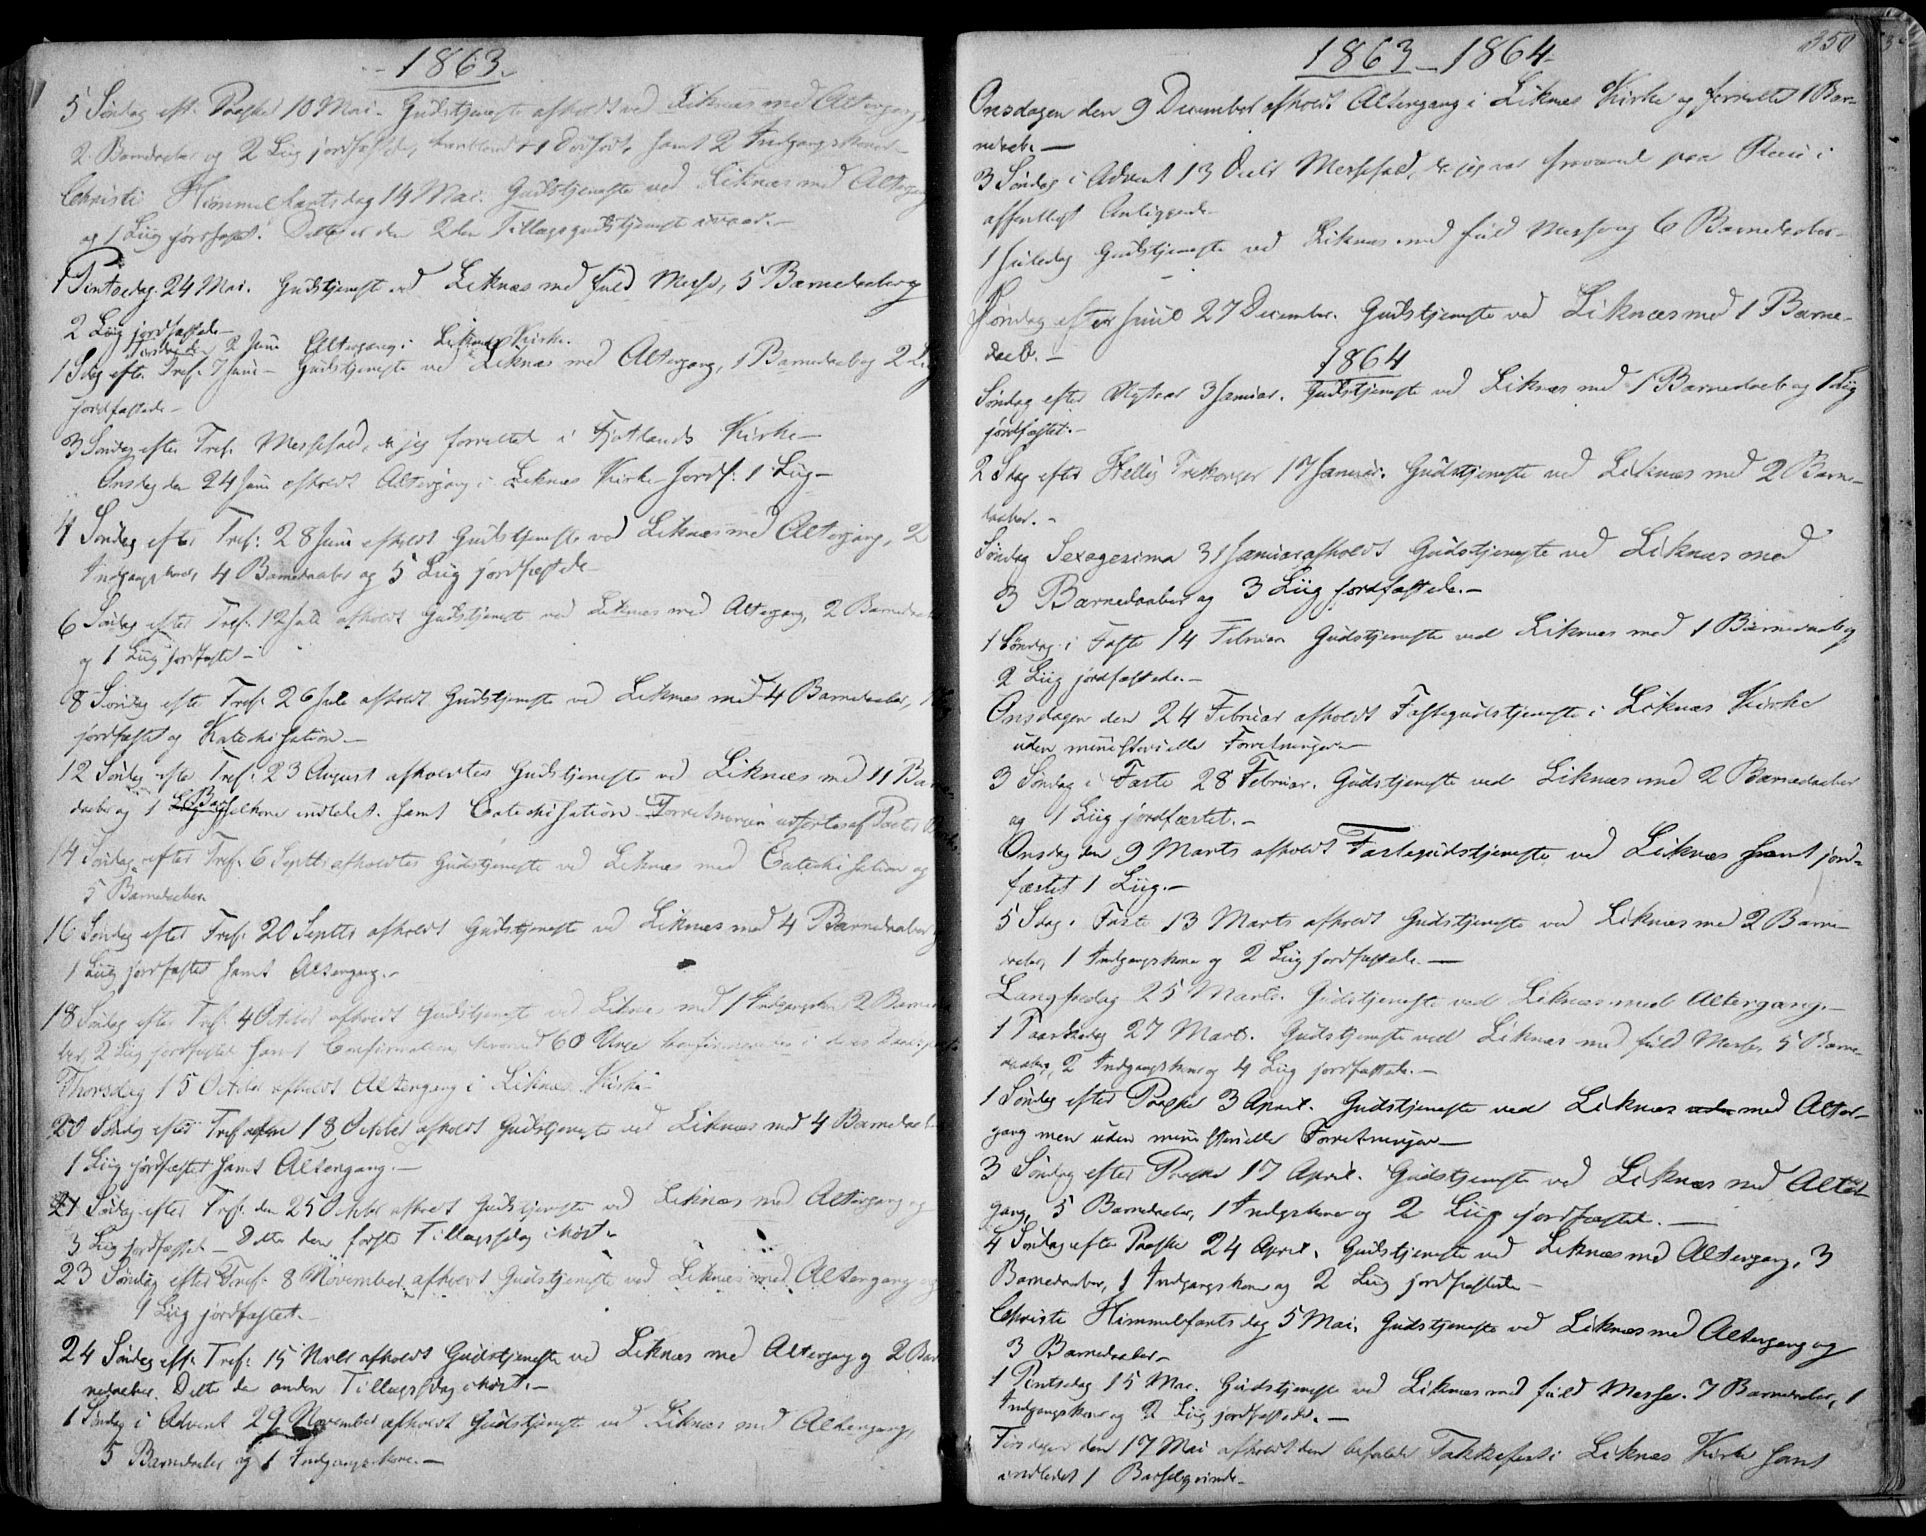 1863.
5 Søndag eft. Paaske 10 Mai. Gudstjeneste afholdt ved Liknæs med Altergang,
2 Barnedaaber og 2 Liig jordfæstede, 1 Dødfødt, samt 2 Indgangskoner
Christi Himmelfartsdag 14 Mai. Gudstjeneste ved Liknæs med Altergang
og 1 Liig jordfæstet. Dette er den 2den Tillægsgudstjeneste i vaar.-
1 Pintsedag 24 Mai. Gudstjeneste ved Liknæs med fuld Messe, 5 Barnedaaber og
2 Liig jordfæstede
Tirsdag den 2 Juni Altergang i Liknæs Kirke.
1 Sdag efter Tref. 7 Juni - Gudstjeneste ved Liknæs med Altergang, 1 Barnedaab og 2 Liig
jordfæstede -
3 Søndag efter Tref. Messefald, da jeg forrettet i Fjotlands Kirke -
Onsdag den 24 Juni afholdt Altergang i Liknæs Kirke Jordf. 1 Liig -
4 Søndag efter Tref. 28 Juni afholdt Gudstjeneste ved Liknæs med Altergang, 2
Indgangskoner, 4 Barnedaaber og 5 Liig jordfæstede
6 Søndag efter Tref. 12 Juli afholdt Gudstjeneste ved Liknæs med Altergang, 2 Barnedaab
og 1 Liig jordfæstet -
8 Søndag efter Tref. 26 Juli afholdt Gudstjeneste ved Liknæs med 4 Barnedaaber, 1
jordfæstet og Katechisation -
12 Søndag efter Tref: 23 August afholdtes Gudstjeneste ved Liknæs med 11 Barne
daaber og 1 Barselkone indledet. samt Catechisation. Forretningen udførtes af Pastor
14 Søndag efter Tref. 6 Septbr afholdtes Gudstjeneste ved Liknæs med Catechisation og
5 Barnedaaber
16 Søndag efter Tref. 20 Septbr afholdt Gudstjeneste ved Liknæs med 4 Barnedaaber
1 Liig jordfæstet samt Altergang. -
18 Søndag efter Tref. 4 October afholdt Gudstjeneste ved Liknæs med 1 Indgangskone 2 Barnedaa
ber, 2 Liig jordfæstet samt Confirmation, hvorved 60 Unge
Thorsdag 15 October afholdt Altergang i Liknæs Kirke
20 Søndag efter Tref 18 Octobr afholdt Gudstjeneste ved Liknæs med 4 Barnedaaber
1 Liig jordfæstet samt Altergang. -
21 Søndag efter Tref. den 25 Octobr afholdt Gudstjeneste ved Liknæs med Altergang og
3 Liig jordfæstet - Dette den første Tillægsdag i høst.
23 Søndag efter Tref. 8 November afholdt Gudstjeneste ved Liknæs med Altergang og
1 Liig jordfæstet. -
24 Søndag eft. Tref: 15 Novbr afholdt Gudstjeneste ved Liknæs med Altergang og 2 Bar
nedaaber. Dette den anden Tillægsdag i høst. -
1 Søndag i Advent 29 November afholdt Gudstjeneste ved Liknæs med Altergang,
5 Barnedaaber og 1 Indgangskone. -
1863 - 1864
350
Onsdagen den 9 December afholdt Altergang i Liknæs Kirke og forrettet 1 Bar-
nedaab. -
3 Søndag i Advent 13 Decbr Messefald, da jeg var fraværende paa Reise i
offentligt Anliggende.
1 Juledag Gudstjeneste ved Liknæs med fuld Messe og 6 Barnedaaber -
Søndag efter Juul 27 December. Gudstjeneste ved Liknæs med 1 Barne-
daab. -
1864
Søndag efter Nytaar 3 Januar. Gudstjeneste ved Liknæs med 1 Barnedaab og 1 Liig
jordfæstet. -
2 Sdag efter Hellig Trekonger 17 Januar. Gudstjeneste ved Liknæs med 2 Barne-
daaber. -
Søndag Sexagesima 31 Januar afholdt Gudstjeneste ved Liknæs med
3 Barnedaaber og 3 Liig jordfæstede. -
1 Søndag i Faste 14 Februar Gudstjeneste ved Liknæs med 1 Barnedaab og
2 Liig jordfæstede. -
Onsdagen den 24 Februar afholdt Fastegudstjeneste i Liknæs Kirke
uden ministerielle Forretninger -
3 Søndag i Faste 28 Februar. Gudstjeneste ved Liknæs med 2 Barnedaaber
og 1 Liig jordfæstet. -
Onsdag den 9 Marts afholdt Fastegudstjeneste ved Liknæs samt jord-
fæstet 1 Liig. -
5 Sdag i Faste 13 Marts afholdt Gudstjeneste ved Liknæs med 2 Barne-
daaber, 1 Indgangskone og 2 Liig jordfæstede. -
Langfredag 25 Marts. Gudstjeneste ved Liknæs med Altergang. -
1 Paaskedag 27 Marts. Gudstjeneste ved Liknæs med fuld Messe, 5 Barne-
daaber, 2 Indgangskoner og 4 Liig jordfæstede. -
1 Søndag efter Paaske 3 April. Gudstjeneste ved Liknæs med Alter-
gang men uden ministerielle Forretninger -
3 Søndag efter Paaske 17 April. Gudstjeneste ved Liknæs med Alter-
gang, 5 Barnedaaber, 1 Indgskone og 2 Liig jordfæstet. -
4 Søndag efter Paaske 24 April. Gudstjeneste ved Liknæs med Altergang, 3
Barnedaaber, 1 Indgangskone og 2 Liig jordfæstede -
Christi Himmelfartsdag 5 Mai. Gudstjeneste ved Liknæs med Altergang og
3 Barnedaaber -
1 Pintsdag 15 Mai. Gudstjeneste ved Liknæs med fuld Messe. 7 Barnedaaber, 1
Indgangskone og 2 Liig jordfæstede. -
Tirsdagen den 17 Mai afholdt den befalede Takkefest i Liknæs Kirke samt
indledet 1 Barselqvinde -